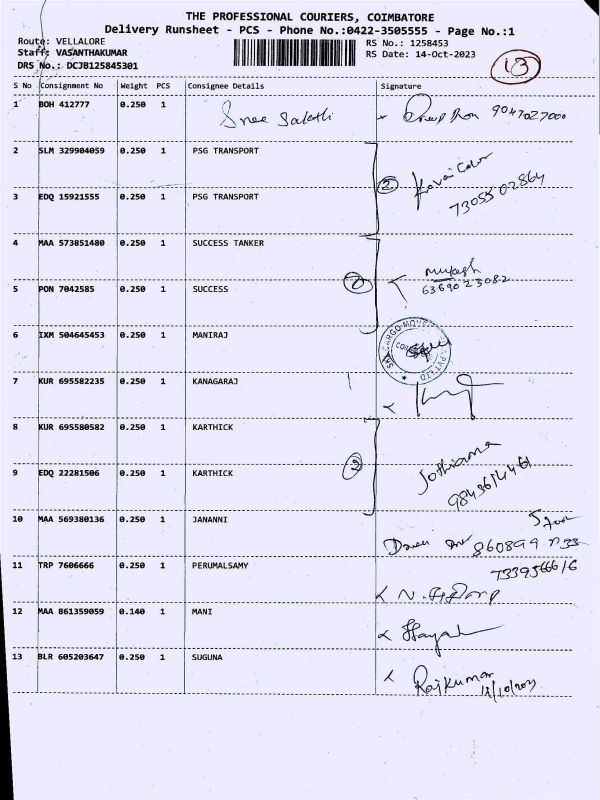 THE PROFESSIONAL COURIERS, COIMBATORE
Delivery Runsheet - PCS - Phone No.:0422-3505555 - Page No.:1
Route: VELLALORE RS No.: 1258453
Staff: VASANTHAKUMAR RS Date: 14-Oct-2023
DRS No.: DCJB125845301 13
S No Consignment No Weight PCS Consignee Details Signature
1 BOH 412777 0.250 1 Sree Sakthi 9047027000
2 SLM 329904059 0.250 1 PSG TRANSPORT
2 Kovai Color
3 EDQ 15921555 0.250 1 PSG TRANSPORT 7305502864
4 MAA 573851480 0.250 1 SUCCESS TANKER
Mukesh
5 PON 7042585 0.250 1 SUCCESS 6369023082
6 IXM 504645453 0.250 1 MANIRAJ
7 KUR 695582235 0.250 1 KANAGARAJ
8 KUR 695580582 0.250 1 KARTHICK
2
9 EDQ 22281506 0.250 1 KARTHICK
10 MAA 569380136 0.250 1 JANANNI
11 TRP 7606666 0.250 1 PERUMALSAMY
12 MAA 861359059 0.140 1 MANI
13 BLR 605203647 0.250 1 SUGUNA
Rajkumar